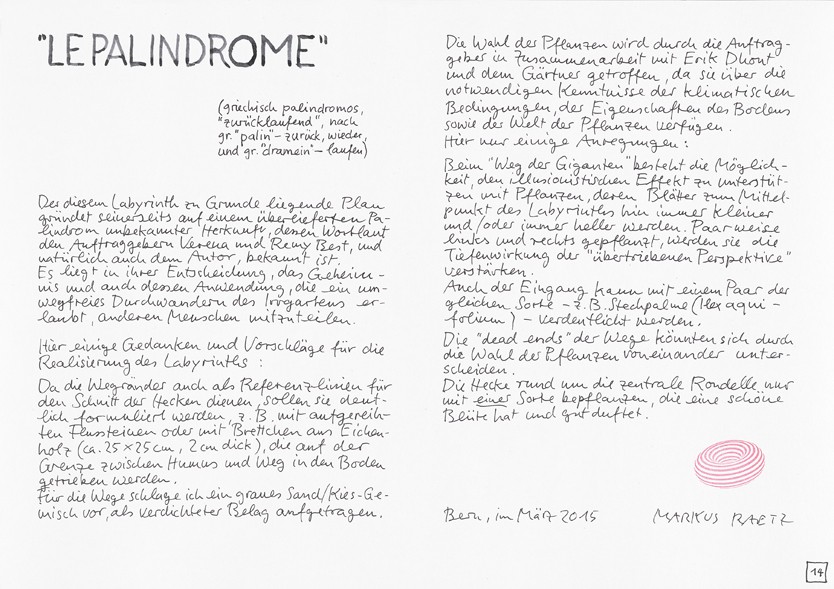 "LE PALINDROME"
(griechisch palindromos,
"zurücklaufend", nach
gr. "palin" – zurück, wieder,
und gr. "dramein" – laufen)
Der diesem Labyrinth zu Grunde liegende Plan
gründet seinerseits auf einem überlieferten Pa-
lindrom unbekannter Herkunft, deren Wortlaut
den Auftraggebern Verena und Remy Best, und
natürlich auch dem Autor, bekannt ist.
Es liegt in ihrer Entscheidung, das Geheim-
nis und auch dessen Anwendung, die ein um-
wegfreies Durchwandern des Irrgartens er-
laubt, anderen Menschen mitzuteilen.
Hier einige Gedanken und Vorschläge für die
Realisierung des Labyrinths :
Da die Wegränder auch als Referenzlinien für
den Schnitt der Hecken dienen, sollen sie deut-
lich formuliert werden, z.B. mit aufgereih-
ten Flusteinen oder mit Brettchen aus Eichen-
holz (ca. 25 x 25 cm, 2 cm dick), die auf der
Grenze zwischen Humus und Weg in den Boden
getrieben werden.
Für die Wege schlage ich ein graues Sand/Kies-Ge-
misch vor, als verdichteter Belag aufgetragen.
Die Wahl der Pflanzen wird durch die Auftrag-
geber in Zusammenarbeit mit Erik Dhont
und dem Gärtner getroffen, da sie über die
notwendigen Kenntnisse der klimatischen
Bedingungen, der Eigenschaften des Bodens
sowie der Welt der Pflanzen verfügen.
Hier nur einige Anregungen :
Beim "Weg der Giganten" besteht die Möglich-
keit, den illusionistischen Effekt zu unterstüt-
zen mit Pflanzen, deren Blätter zum Mittel-
punkt des Labyrinths hin immer kleiner
und/oder immer heller werden. Paarweise
links und rechts gepflanzt, werden sie die
Tiefenwirkung der "übertriebenen Perspektive"
verstärken.
Auch der Eingang kann mit einem Paar der
gleichen Sorte – z.B. Stechpalme (Ilex aqui-
folium) – verdeutlicht werden.
Die "dead ends" der Wege könnten sich durch
die Wahl der Pflanzen voneinander unter-
scheiden.
Die Hecke rund um die zentrale Rondelle nur
mit einer Sorte bepflanzen, die eine schöne
Blüte hat und gut duftet.
Bern, im März 2015 MARKUS RAETZ
14